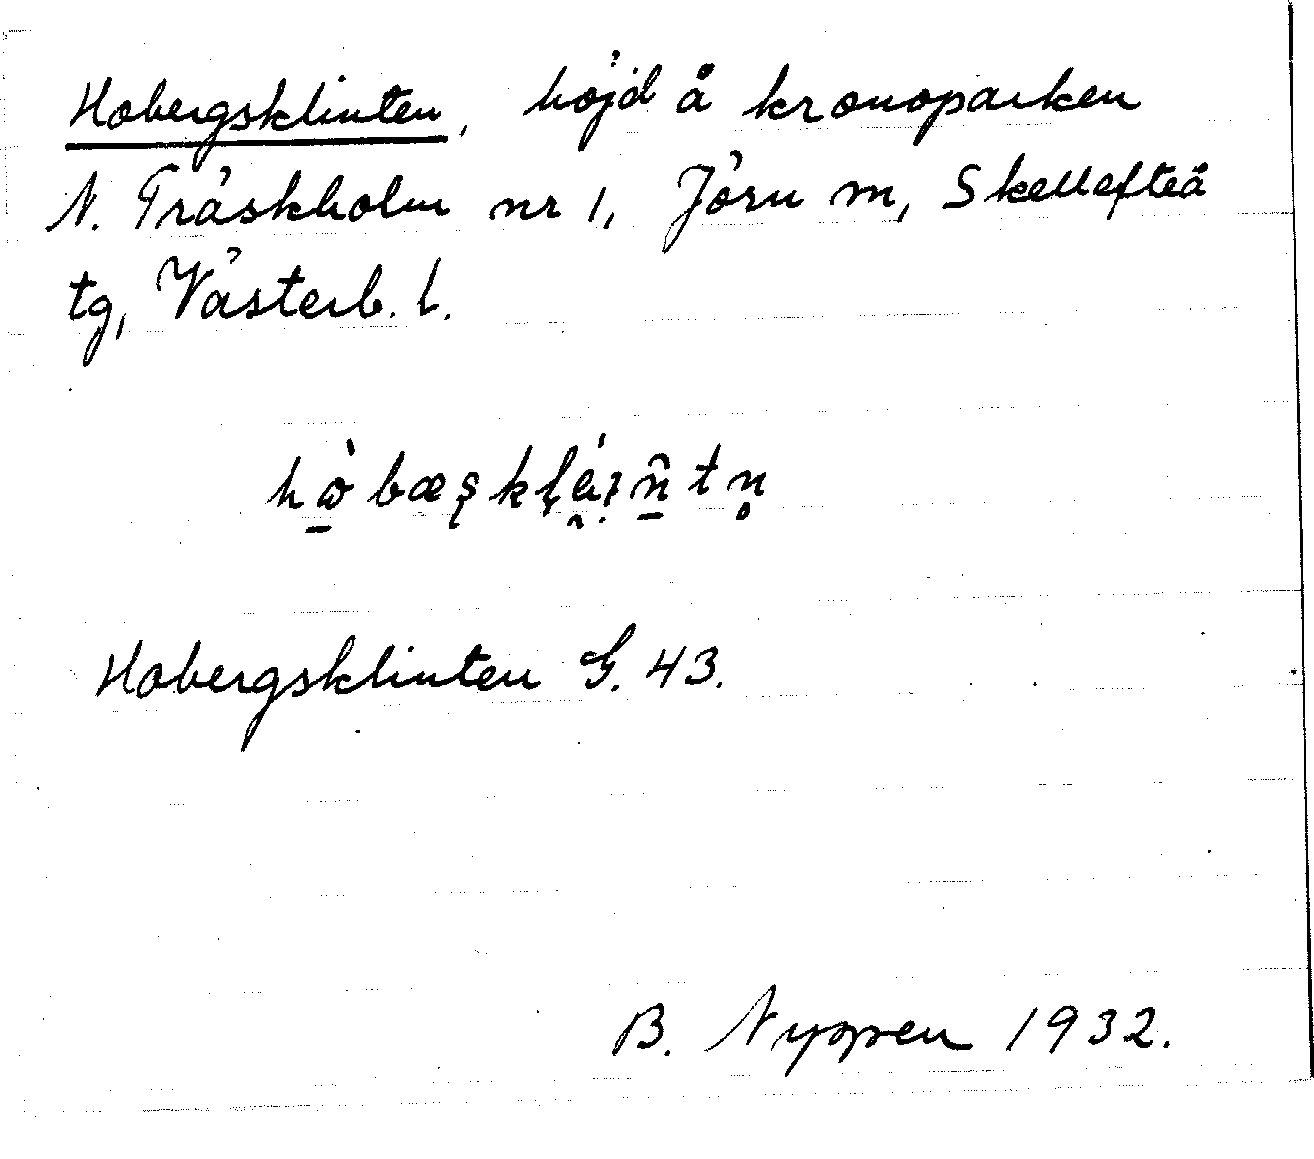 Hobergsklinten, höjd å kronoparken
N. Träskholm nr 1, Jörn sn, Skellefteå
tg, Västerb. l.
Hobergsklinten G. 43.
B. Nyppen 1932.